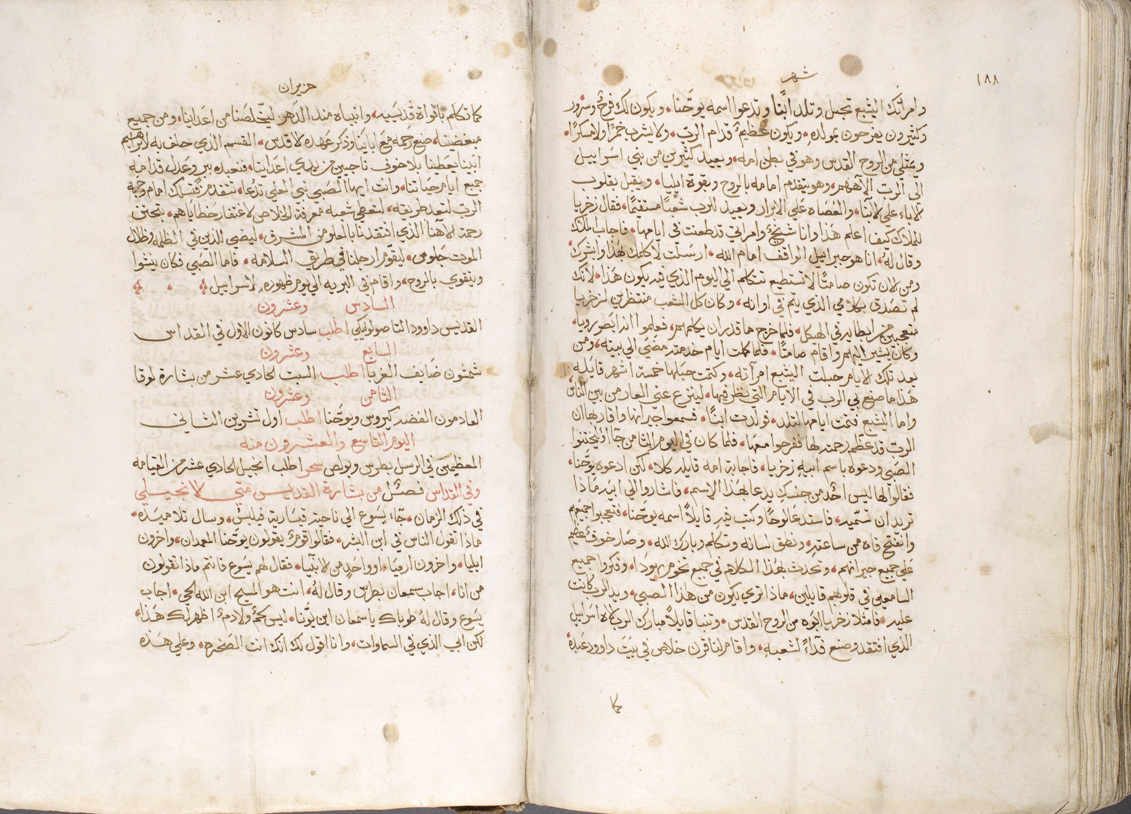 ١٨٨
شهر
وامرأتك اليشبع تحبل وتلد ابنًا وتدعوا اسمه يوحنا، ويكون لك فرح وسرور
وكثيرون يفرحون بمولده، ويكون عظيم قدام الرب، ولا يشرب خمرًا ولا مسكرًا،
ويمتلي من الروح القدس وهو في بطن امه، ويعيد كثيرين من بني اسراييل
الى الرب الاههم، وهو يتقدم امامه بالروح وبقوة ايليا، ويقبل بقلوب
الاباء على الابنا، والعصاه على الابرار ويعيد للرب شعبًا مستقيمًا، فقال زخريا
للملاك كيف اعلم هذا وانا شيخ وامراتي قد طعنت في ايامها، فاجاب الملاك
وقال له، انا هو جبراييل الواقف امام الله، ارسلت لاكلمك بهذا وابشرك
ومن الان تكون صامتًا لا تستطيع تتكلم الى اليوم الذي فيه يكون هذا، لانك
لم تصدق بكلامي الذي يتم في اوانه، وكان كل الشعب منتظرين لزخريا
متعجبين من ابطايه في الهيكل، فلما خرج ما قدر ان يكلمهم، فعلموا انه ابصر رويا،
وكان يشير اليهم واقام صامتًا، فلما كملت ايام خدمته مضى الى بيته، ومن
بعد تلك الايام حبلت اليشبع امرأته، وكتمت حبلها خمسة اشهر قايله
هذا ما صنع بي الرب في الايام التي نظر فيها، لينزع عني العار من بين الناس
واما اليشبع فتمت ايامها لتلد، فولدت ابنًا، فسمعوا جيرانها واقاربها ان
الرب قد عظم رحمته لها ففرحوا معها، فلما كان في اليوم الثامن جاءوا ليختنوا
الصبي ودعوه باسم ابيه زخريا، فاجابة امه قايله كلا، لكن ادعوه يوحنا،
فقالوا لها ليس احد من جنسك يدعا بهذا الاسم، فاشاروا الى ابيه ماذا
تريد ان تسميه، فاستدعا لوحًا وكتب فيه قايلًا اسمه يوحنا، فتعجبوا جميعهم
وانفتح فاه من ساعته، ونطق لسانه وتكلم وبارك الله، وصار خوف عظيم
على جميع جيرانهم، وتحدث بهذا الكلام في جميع تخوم يهودا، وفكروا جميع
السامعين في قلوبهم قايلين، ماذا ترى يكون من هذا الصبي، ويد الرب كانت
عليه، فامتلا زخريا ابوه من روح القدس، وتنبا قايلًا مبارك الرب الاه اسراييل
الذي افتقد وصنع فدآء لشعبه، واقام لنا قرن خلاص في بيت داوود عبده
كما
حزيران
كما تكلم بافواة قديسيه، وانبياه منذ الدهر ليخلصنا من اعداينا، ومن جميع
مبغضينا، صنع رحمه مع اباينا وذكر عهده لاقدس، القسم الذي حلف به لابراهيم
ابينا يعطينا بلا خوف ناجيين من يدي اعداينا، فنعبده ببر وعدل قدامه
جميع ايام حياتنا، وانت ايها الصبي نبي العلي تدعا، ستقدم تسلك امام وجه
الرب لتعد طريقه، لتعطي شعبه معرفة الخلاص لاغتفار خطاياهم، بتحنن
رحمة الاهنا الذي افتقدنا بالعلو من المشرق، ليضي للذين في الظلمه وظلال
الموت جلوس، ليقوم ارجلنا في طريق السلامه، فاما الصبي فكان ينشوا
ويتقوى بالروح، واقام في البريه الى يوم ظهوره لاسراييل
السادس وعشرون
القديس داوود التاصلونيكي اطلب سادس كانون الاول في القداس
السابع وعشرون
شمشون ضايف الغربا اطلب السبت الحادي عشر من بشارة لوقا
الثامن وعشرون
العادمون الفضه كيروس ويوحنا اطلب اول تشرين الثاني
اليوم التاسع والعشرون منه
المعظمين في الرسل بطرس وبولص سحر اطلب انجيل الحادي عشر من القيامه
وفي القداس فصل من بشارة القديس متي الانجيلي
في ذلك الزمان، جاء يسوع الى ناحية قيسارية فيلبس، وسال تلاميذه،
ماذا تقول الناس في ابن البشر، فقالوا قوم يقولون يوحنا المعمدان، واخرون
ايليا، واخرون ارميا، او واحد من الانبيا، فقال لهم يسوع فانتم ماذا تقولون
من انا، اجاب سمعان بطرس وقال له، انت هو المسيح ابن الله الحي، اجاب
يسوع وقال له طوباك يا سمعان ابن يونا، ليس لحم ولا دم اظهر لك هذا،
لكن ابي الذي في السماوات، وانا اقول لك انك انت الصخره، وعلى هذه